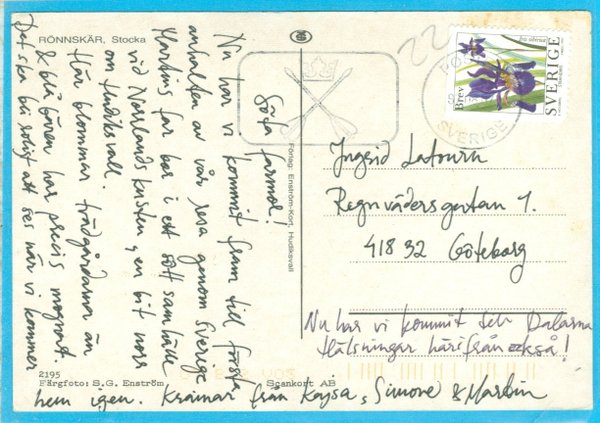 RÖNNSKÄR, Stocka
Söta farmor!
Nu har vi kommit fram till första
anhalten av vår resa genom Sverige
Martins far bor i ett sött samhälle
vid Norrlandskusten, en bit norr
om Hudiksvall.
Här blommar trädgårdarna än
& blåbären har precis mognat.
Det ska bli roligt att ses när vi kommer
hem igen. Kramar från Kajsa, Simone & Martin
2195
Färgfoto: S.G. Enström
Scankort AB
Förlag: Enström-Kort, Hudiksvall
22
Brev
SVERIGE
SVERIGE
Ingrid Latourn
Regnvädersgatan 1.
418 32 Göteborg
Nu har vi kommit till Dalarna
Hälsningar härifrån också!